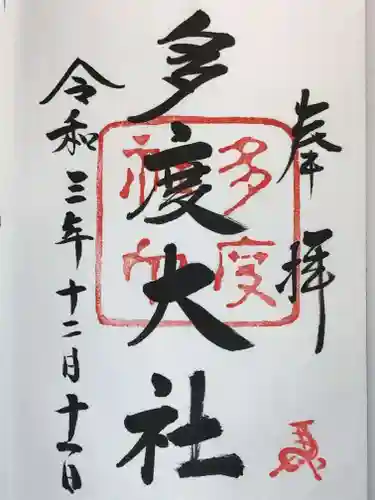 奉拝
多度大社
令和三年十二月十一日
多度